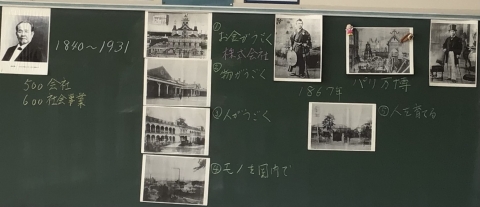 1840～1931
500 会社
600 社会事業
① お金がうごく
株式会社
② 物がうごく
③ 人がうごく
④ モノを国内で
1867年
パリ万博
⑤ 人を育てる